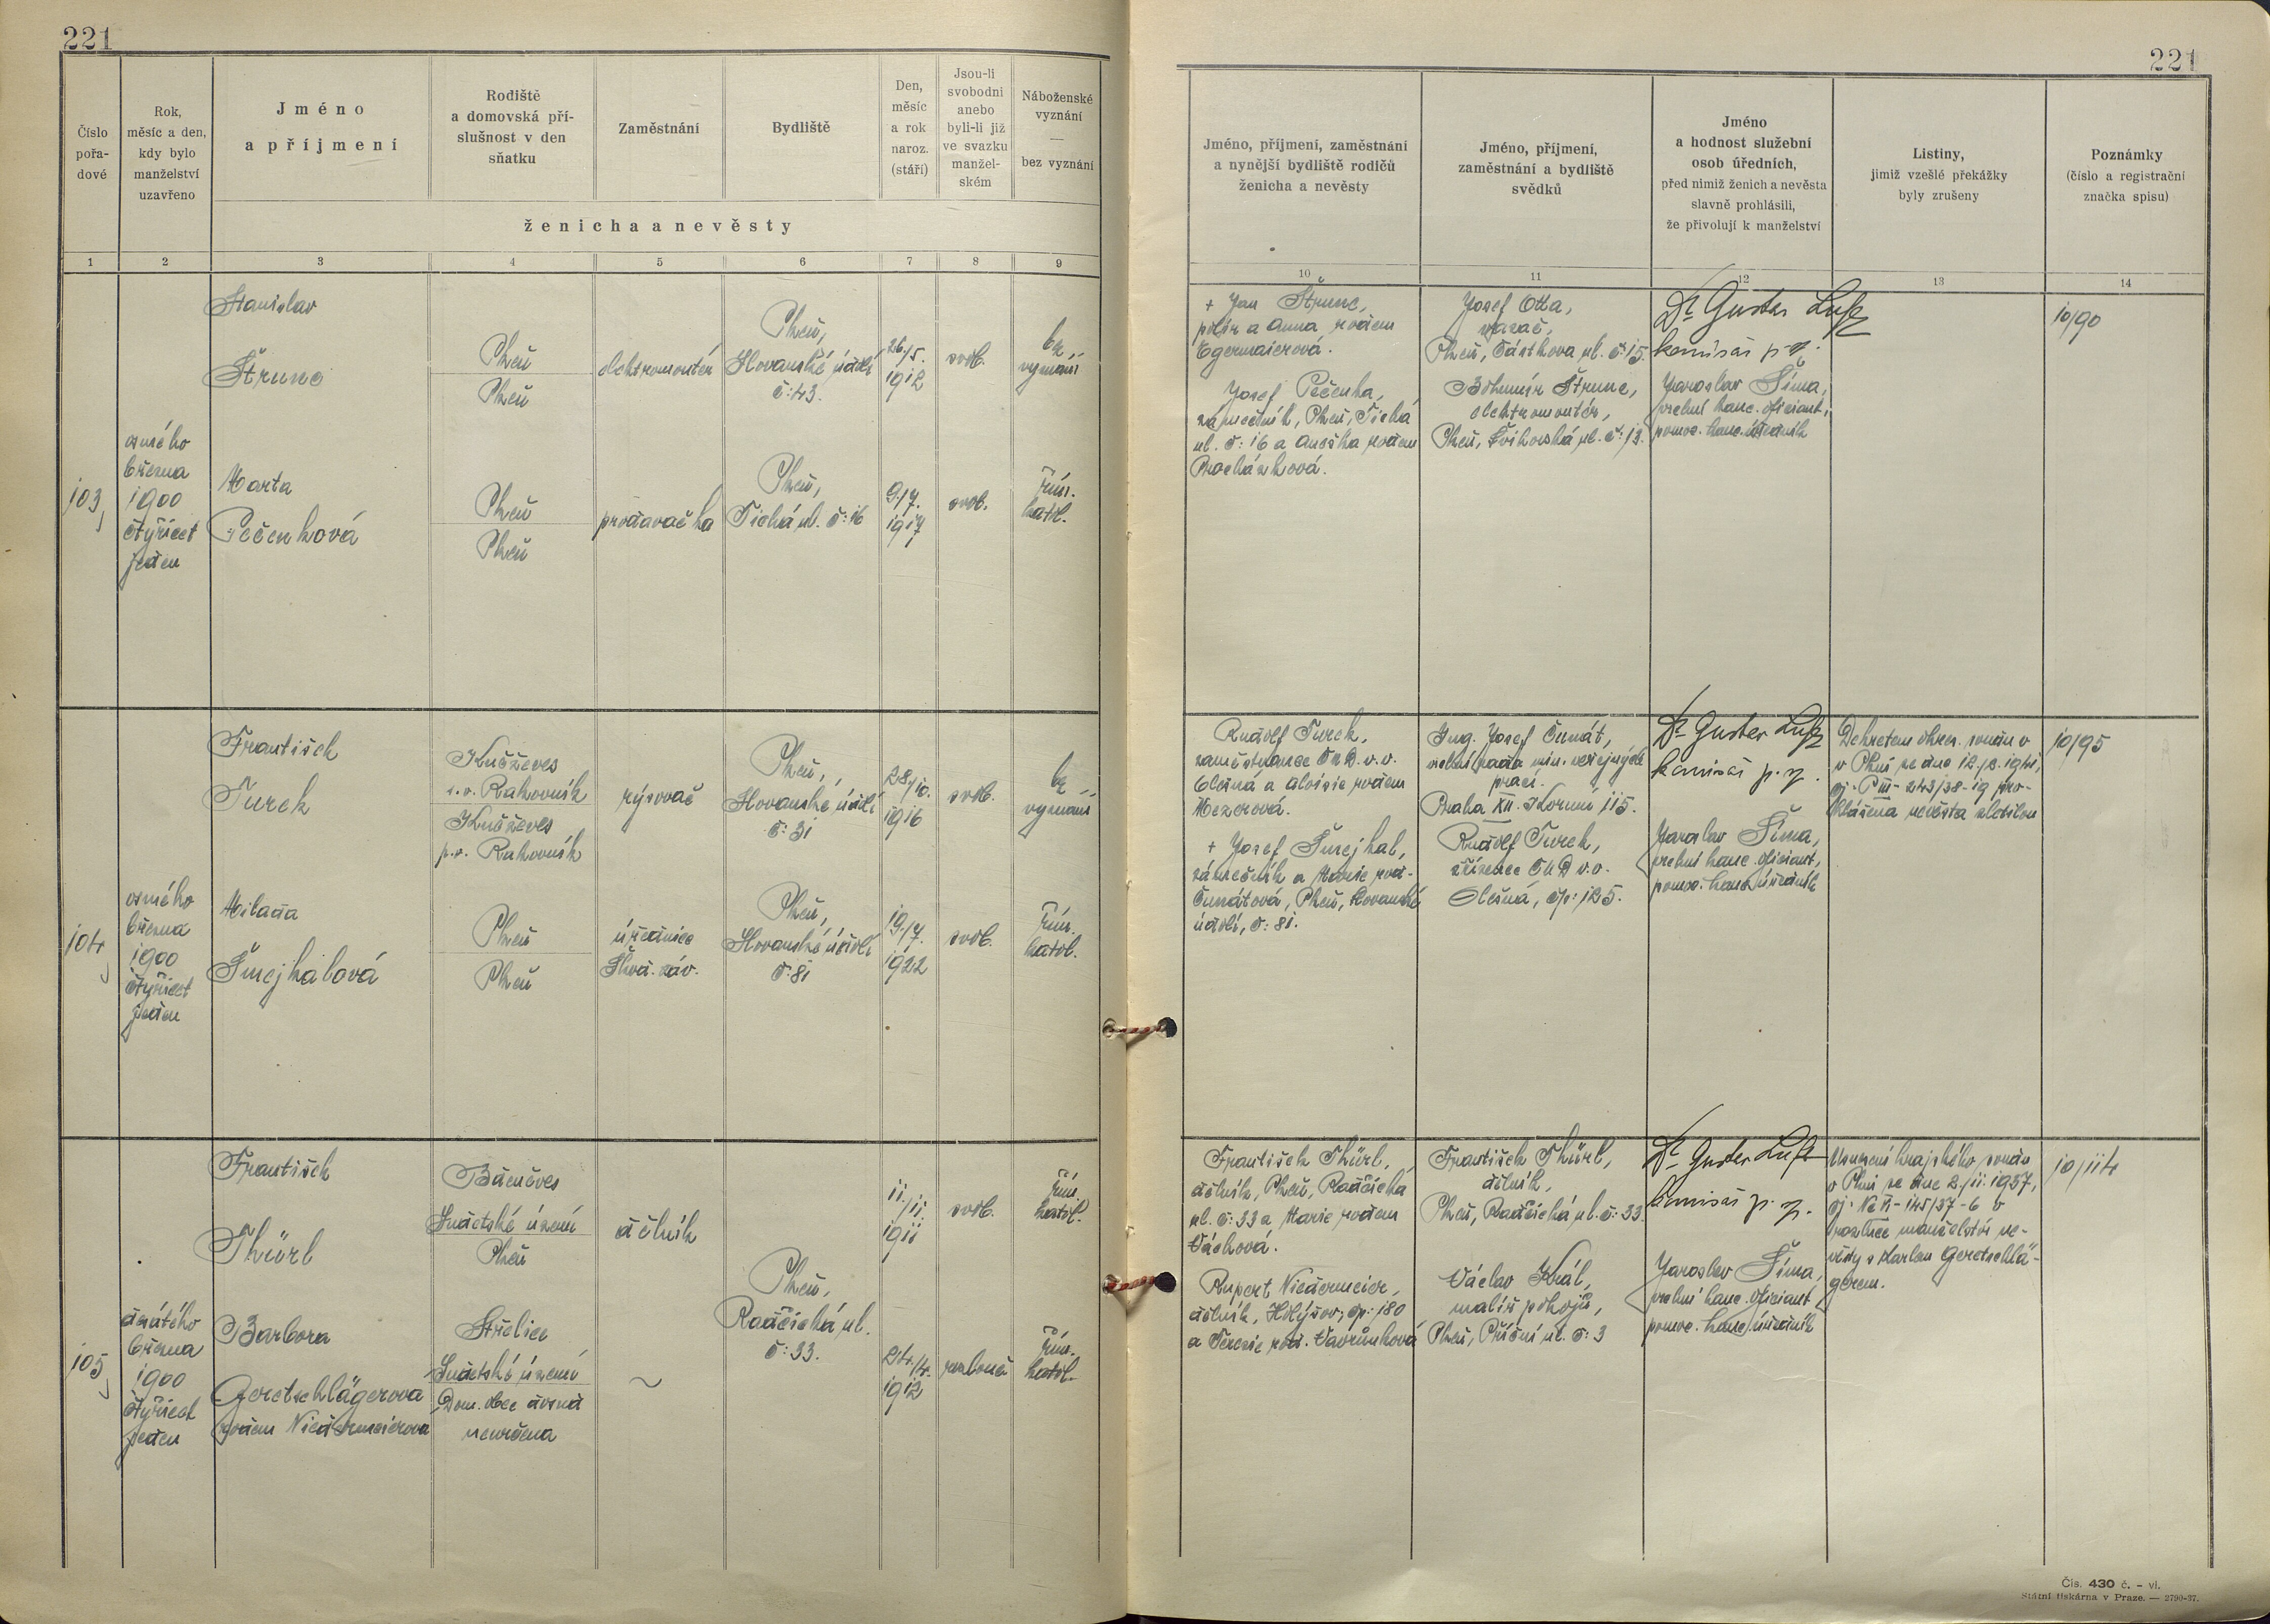 221
221
Číslo pořa-
dové
Rok,
měsíc a den,
kdy bylo
manželství
uzavřeno
Jméno
a příjmení
Rodiště
a domovská pří-
slušnost v den
sňatku
Zaměstnání
Bydliště
Den,
měsíc
a rok
naroz.
(stáří)
Jsou-li
svobodni
anebo
byli-li již
ve svazku
manžel-
ském
Náboženské
vyznání
—
bez vyznání
ženicha a nevěsty
1 2 3 4 5 6 7 8 9
Jméno, příjmení, zaměstnání
a nynější bydliště rodičů
ženicha a nevěsty
Jméno, příjmení,
zaměstnání a bydliště
svědků
Jméno
a hodnost služební
osob úředních,
před nimiž ženich a nevěsta
slavně prohlásili,
že přivolují k manželství
Listiny,
jimiž vzešlé překážky
byly zrušeny
Poznámky
(číslo a registrační
značka spisu)
10 11 12 13 14
103
osmého
března
1900
čtyřicet
jeden
Stanislav
Štrunc
Plzeň
Plzeň
elektromontér
Plzeň,
Slovanské údolí
č: 43.
26./5.
1912
svob.
bez
vyznání
Marta
Pečenková
Plzeň
Plzeň
prodavačka
Plzeň,
Tichá ul. č: 16
9./7.
1917
svob.
řím.
katol.
+ Jan Štrunc,
polír a Anna rodem
Egermaierová.
Josef Pečenka,
zámečník, Plzeň, Tichá
ul. č: 16 a Anežka rodem
Procházková.
Josef Otta,
Plzeň, Částkova ul. č: 15.
Bohumír Štrunc,
elektromontér,
Plzeň, Švihovská ul. č: 13.
Dr Gustav
komisař p. z.
Jaroslav Šíma,
vrchní kanc. oficiant,
pomoc. kanc. úředník
10/90
104
osmého
března
1900
čtyřicet
jeden
František
Turek
Kněževes
s. o. Rakovník
Kněževes
p. o. Rakovník
rýsovač
Plzeň,
Slovanské údolí
č: 31
28./10.
1916
svob.
bez
vyznání
Milada
Šmejkalová
Plzeň
Plzeň
úřednice
Škod. záv.
Plzeň,
Slovanské údolí
č: 81
19./7.
1922
svob.
řím.
katol.
Rudolf Turek,
zaměstnanec ČMD. v. v.
Olešná a Aloisie rodem
Mezerová.
+ Josef Šmejkal,
zámečník a Marie rod.
Čunátová, Plzeň, Slovanské
údolí, č: 81.
Ing. Josef Čunát,
vrchní rada min. veřejných
prací.
Praha XII. Korunní 115.
Rudolf Turek,
zřízenec ČMD v. v.
Olešná, čp: 125.
Dr Gustav
komisař p. z.
Jaroslav Šíma,
vrchní kanc. oficiant,
pomoc. kanc. úředník
Dekretem okres. soudu v
v Plzni ze dne
čj. P III - 243/38-19 pro-
hlášena nevěsta zletilou
10/95
105
desátého
března
1900
čtyřicet
jeden
František
Thürl
Bděněves
Sudetské území
Plzeň
dělník
Plzeň,
Radčická ul.
č: 33.
11./11.
1911
svob.
řím.
katol.
Barbora
Geretschlägerova
rodem Niedermeierova
Střelice
Sudetské území
Dom. obec dosud
neurčena
~
24./4.
1912
rozlouč.
řím.
katol.
František Thürl,
dělník, Plzeň, Radčická
ul. č: 33 a Marie rodem
Váchová.
Rupert Niedermeier,
dělník, Holýšov, čp: 180
a Terezie roz. Vavřinková
František Thürl,
dělník,
Plzeň, Radčická ul. č: 33.
Václav Král,
malíř pokojů,
Plzeň, Příční ul. č: 3
Dr Gustav
komisař p. z.
Jaroslav Šíma,
vrchní kanc. oficiant
pomoc. kanc. úředník
Usnesení krajského soudu
v Plzni ze dne 2./11. 1937,
čj. Nc VI - 145/37-6 o
rozluce manželství ne-
věsty s Karlem Geretschlä-
gerem.
10/114
Čís. 430 č. – vl.
Státní tiskárna v Praze. — 2790-37.